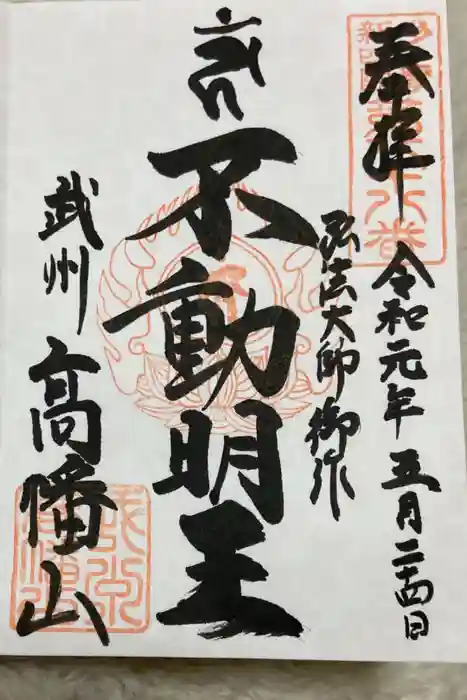 奉拝
令和元年五月二十四日
弘法大師御作
不動明王
武州
高幡山